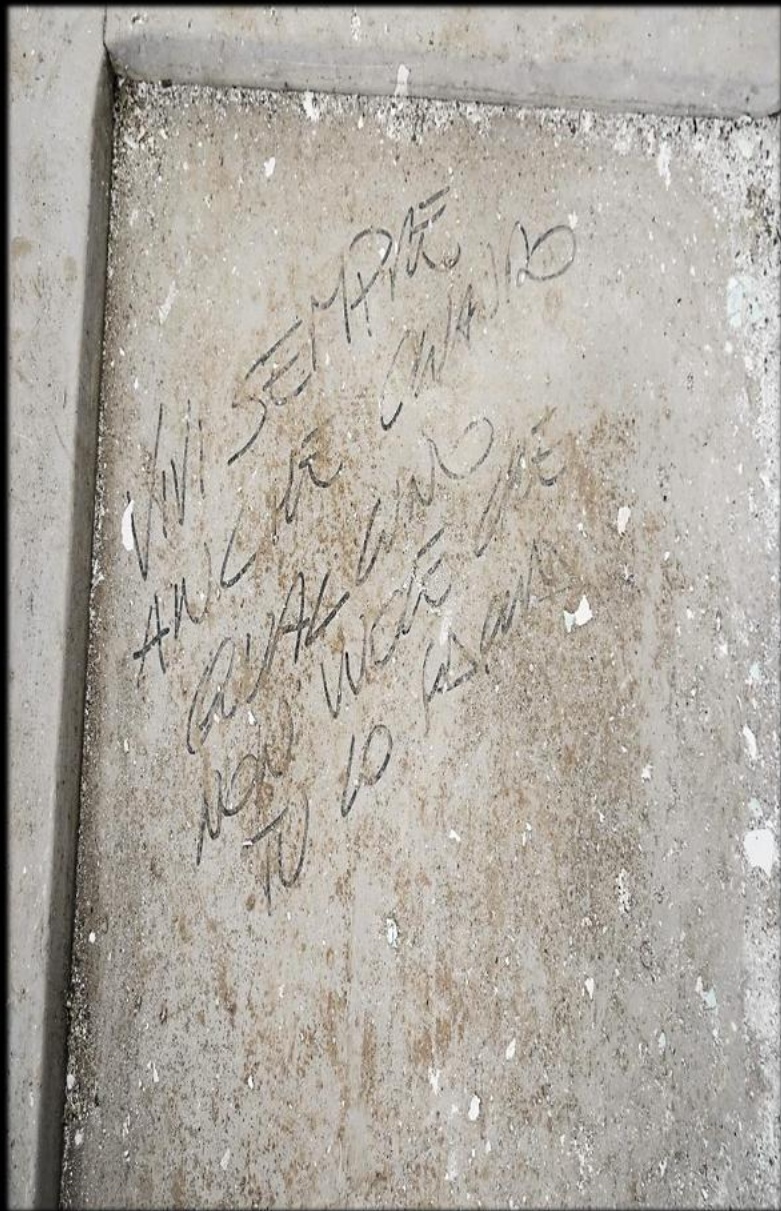 VIVI SEMPRE
ANCHE QUANDO
QUALCUNO
NON VUOLE CHE
TU LO FACCIA